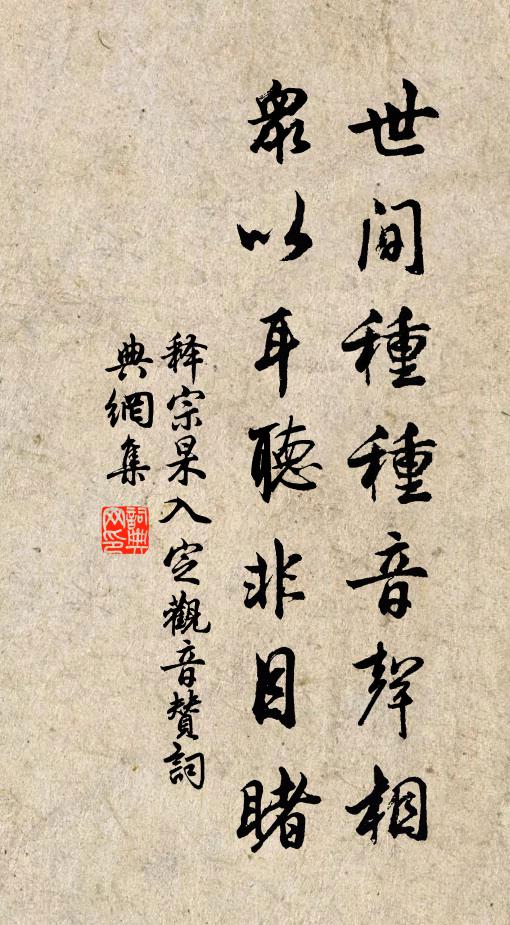 世間種種音聲相
眾以耳聽非目睹
释宗杲入定觀音贊詞
典網集
詞典网印